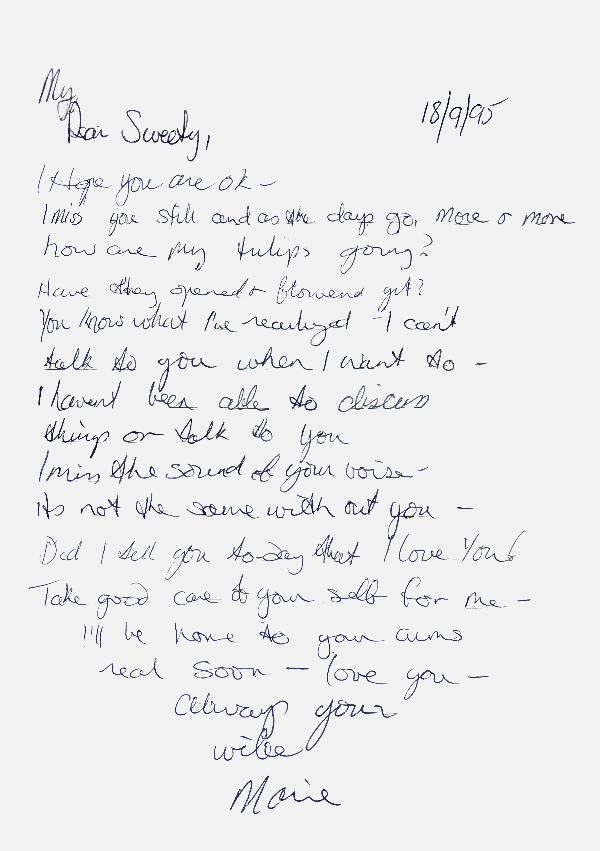 My
18/9/95
Dear Sweety,
I Hope you are ok -
I miss you still and as the days go, more & more
how are my tulips going?
Have they opened & flowerd yet?
You know what I've realized - I can't
talk to you when I want to -
I havent been able to discuss
things or talk to you
I miss the sound of your voise -
Its not the same with out you -
Did I tell you to-day that I love You?
Take good care to your self for me -
I'll be home to your arms
real soon - love you -
Always your
wife
Marie